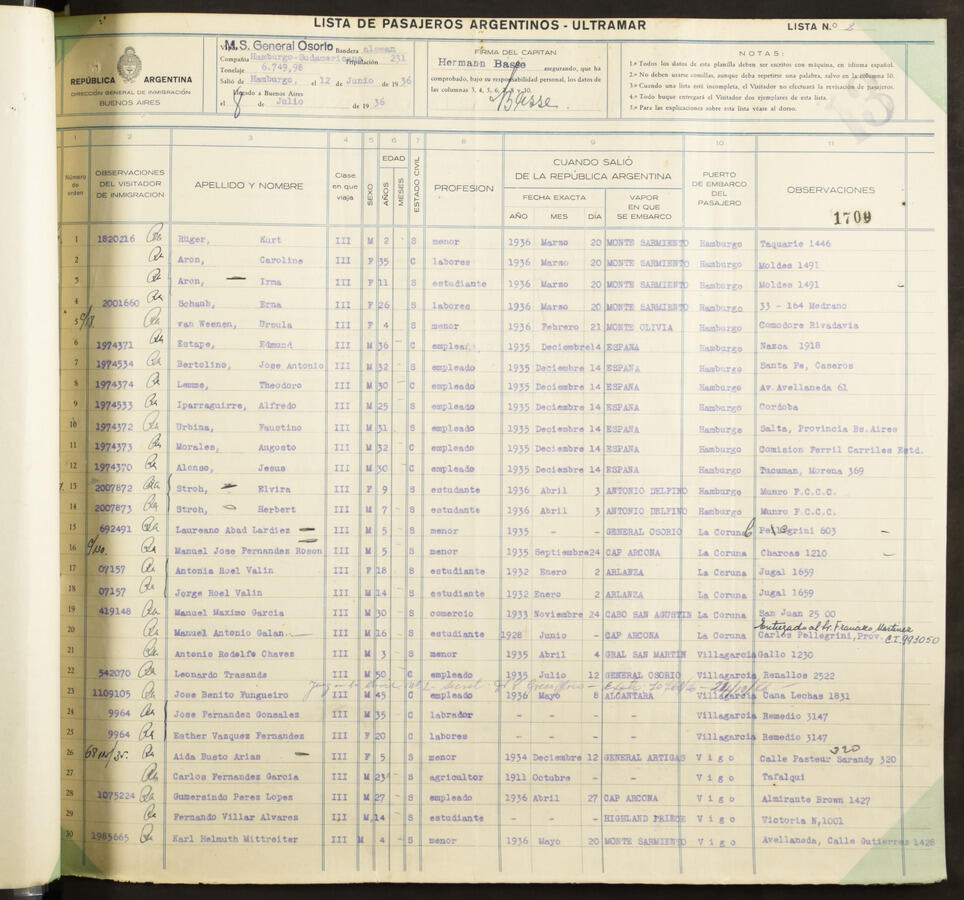 LISTA DE PASAJEROS ARGENTINOS - ULTRAMAR
LISTA N.o 2
REPÚBLICA ARGENTINA
DIRECCIÓN GENERAL DE INMIGRACIÓN
BUENOS AIRES
M.S. General Osorio Bandera aleman
Compañía Hamburgo-Sudamericana Tripulación 231
Tonelaje 6.749,98
Salió de Hamburgo, el 12 de Junio de 1936
Llegado a Buenos Aires
el 8 de Julio de 1936
FIRMA DEL CAPITAN
Hermann Basse asegurando, que ha
comprobado, bajo su responsabilidad personal, los datos de
las columnas 3, 4, 5, 6, 7, 8 y 10.
Basse.
NOTAS:
1.ª Todos los datos de esta planilla deben ser escritos con máquina, en idioma español.
2.ª No deben usarse comillas, aunque deba repetirse una palabra, salvo en la columna 10.
3.ª Cuando una lista esté incompleta, el Visitador no efectuará la revisación de pasajeros.
4.ª Todo buque entregará el Visitador dos ejemplares de esta lista.
5.ª Para las explicaciones sobre esta lista véase al dorso.
13
1 2 3 4 5 6 7 8 9 10 11
Número de orden
OBSERVACIONES DEL VISITADOR DE INMIGRACION
APELLIDO Y NOMBRE
Clase en que viaja
SEXO
EDAD
AÑOS
MESES
ESTADO CIVIL
PROFESION
CUANDO SALIÓ DE LA REPÚBLICA ARGENTINA
FECHA EXACTA
AÑO MES DÍA
VAPOR EN QUE SE EMBARCO
PUERTO DE EMBARCO DEL PASAJERO
OBSERVACIONES
1709
1 1820216 Rüger, Kurt III M 2 - S menor 1936 Marzo 20 MONTE SARMIENTO Hamburgo Taquarie 1446
2 Aron, Caroline III F 35 C labores 1936 Marzo 20 MONTE SARMIENTO Hamburgo Moldes 1491
3 Aron, Irma III F 11 S estudiante 1936 Marzo 20 MONTE SARMIENTO Hamburgo Moldes 1491
4 2001660 Schaub, Erna III F 26 S labores 1936 Marzo 20 MONTE SARMIENTO Hamburgo 33 - 164 Medrano
5 van Weenen, Ursula III F 4 S menor 1936 Febrero 21 MONTE OLIVIA Hamburgo Comodore Rivadavia
6 1974371 Estape, Edmund III M 36 C empleado 1935 Deciembre 14 ESPANA Hamburgo Nazca 1918
7 1974534 Bertolino, Jose Antonio III M 32 S empleado 1935 Deciembre 14 ESPANA Hamburgo Santa Fe, Caseros
8 1974374 Lemme, Theodoro III M 30 C empleado 1935 Deciembre 14 ESPANA Hamburgo Av. Avellaneda 61
9 1974533 Iparraguirre, Alfredo III M 25 S empleado 1935 Deciembre 14 ESPANA Hamburgo Cordoba
10 1974372 Urbina, Faustino III M 31 S empleado 1935 Deciembre 14 ESPANA Hamburgo Salta, Provincia Bs.Aires
11 1974373 Morales, Augosto III M 32 C empleado 1935 Deciembre 14 ESPANA Hamburgo Comision Ferril Carriles Estd.
12 1974370 Alonso, Jesus III M 30 C empleado 1935 Deciembre 14 ESPANA Hamburgo Tucuman, Morena 369
13 2007872 Stroh, Elvira III F 9 S estudante 1936 Abril 3 ANTONIO DELFINO Hamburgo Munro F.C.C.C.
14 2007873 Stroh, Herbert III M 7 S estudante 1936 Abril 3 ANTONIO DELFINO Hamburgo Munro F.C.C.C.
15 692491 Laureano Abad Lardiez III M 5 S menor 1935 - GENERAL OSORIO La Coruna Pellegrini 603
16 Manuel Jose Fernandez Roson III M 5 S menor 1935 Septiembre 24 CAP ARCONA La Coruna Charcas 1210
17 07157 Antonia Roel Valin III F 18 S estudiante 1932 Enero 2 ARLANZA La Coruna Jugal 1659
18 07157 Jorge Roel Valin III M 14 S estudiante 1932 Enero 2 ARLANZA La Coruna Jugal 1659
19 419148 Manuel Maximo Garcia III M 30 S comercio 1933 Noviembre 24 CABO SAN AGUSTIN La Coruna San Juan 25 00
Entregado al Sr. Francisco Martinez
20 Manuel Antonio Galan III M 16 S estudiante 1928 Junio - CAP ARCONA La Coruna Carlos Pellegrini, Prov. C.I. 993050
21 Antonio Rodelfo Chaves III M 3 S menor 1935 Abril 4 GRAL SAN MARTIN Villagarcia Gallo 1230
22 542070 Leonardo Trasande III M 50 C empleado 1935 Julio 12 GENERAL OSORIO Villagarcia Renallos 2522
23 1109105 Jose Benito Fungueiro III M 45 C empleado 1936 Mayo 8 ALCANTARA Villagarcia Cana Lechas 1831
24 9964 Jose Fernandez Gonsales III M 35 C labrador - - - Villagarcia Remedio 3147
25 9964 Esther Vazquez Fernandez III F 20 C labores - - - Villagarcia Remedio 3147
26 Aida Busto Arias III F 5 S menor 1934 Deciembre 12 GENERAL ARTIGAS Vigo Calle Pasteur Sarandy 320
320
27 Carlos Fernandez Garcia III M 23 S agricultor 1911 Octubre - - Vigo Tafalqui
28 1075224 Gumersindo Perez Lopez III M 27 S empleado 1936 Abril 27 CAP ARCONA Vigo Almirante Brown 1427
29 Fernando Villar Alvarez III M 14 S estudiante - - - HIGHLAND PRIECE Vigo Victoria N,1001
30 1985665 Karl Helmuth Mittreiter III M 4 S menor 1936 Mayo 20 MONTE SARMIENTO Vigo Avellaneda, Calle Gutierres 1428